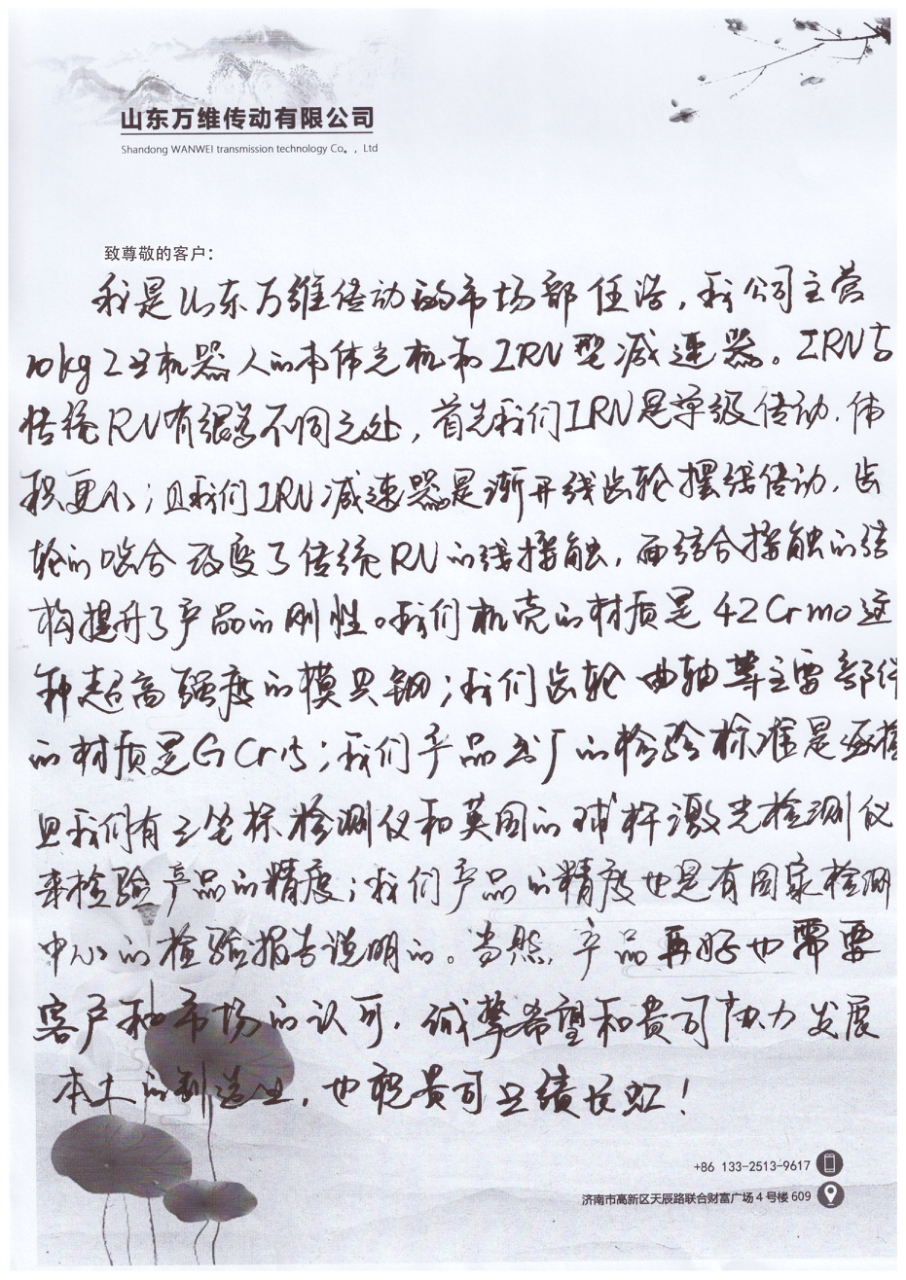 山东万维传动有限公司
Shandong WANWEI transmission technology Co。, Ltd
致尊敬的客户:
我是山东万维传动的市场部任浩,我公司主营
10kg工业机器人的本体光机和IRN型减速器。IRN与
传统RN有很多不同之处,首先我们IRN是单级传动,体
积更小;且我们IRN减速器是渐开线齿轮摆线传动,齿
轮的啮合改变了传统RN的线接触,面结合接触的结
构提升了产品的刚性。我们机壳的材质是42Crmo这
种超高强度的模具钢;我们齿轮曲轴等主要部件
的材质是GCr15;我们产品出厂的检验标准是逐检
且我们有三坐标检测仪和英国的球杆激光检测仪
来检验产品的精度;我们产品的精度也是有国家检测
中心的检验报告说明的。当然,产品再好也需要
客户和市场的认可,诚挚希望和贵司协力发展
本土的制造业,也祝贵司业绩长虹!
+86 133-2513-9617
济南市高新区天辰路联合财富广场4号楼609